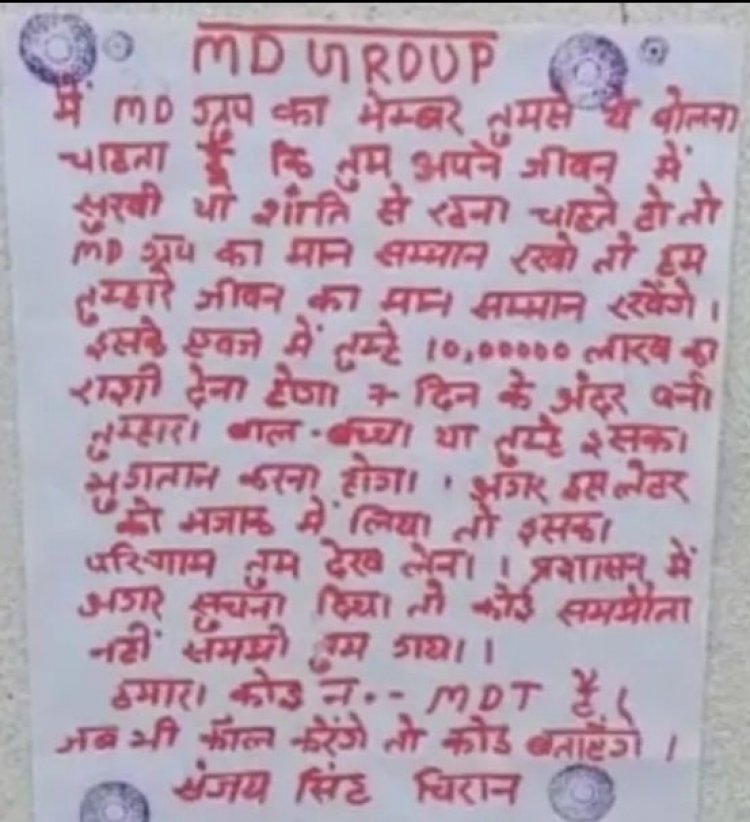 MD GROUP
में MD ग्रुप का मेम्बर तुमसे ये बोलना
चाहता हूँ कि तुम अपने जीवन में
सुखी यो शांति से रहना चाहते हो तो
MD ग्रुप का मान सम्मान रखो तो हम
तुम्हारे जीवन का मान सम्मान रखेंगे ।
इसके एवज में तुम्हे 10,00000 लाख का
राशी देना होगा 7 दिन के अंदर वर्ना
तुम्हारा बाल-बच्चा या तुम्हे इसका
भुगतान करना होगा । अगर इस लेटर
को मजाक में लिया तो इसका
परिणाम तुम देख लेना । प्रशासन में
अगर सुचना दिया तो कोई समझौता
नहीं समझो तुम गया ।
हमारा कोड नं.- MDT है ।
जब भी कॉल करेंगे तो कोड बताएंगे ।
संजय सिंह चिरान